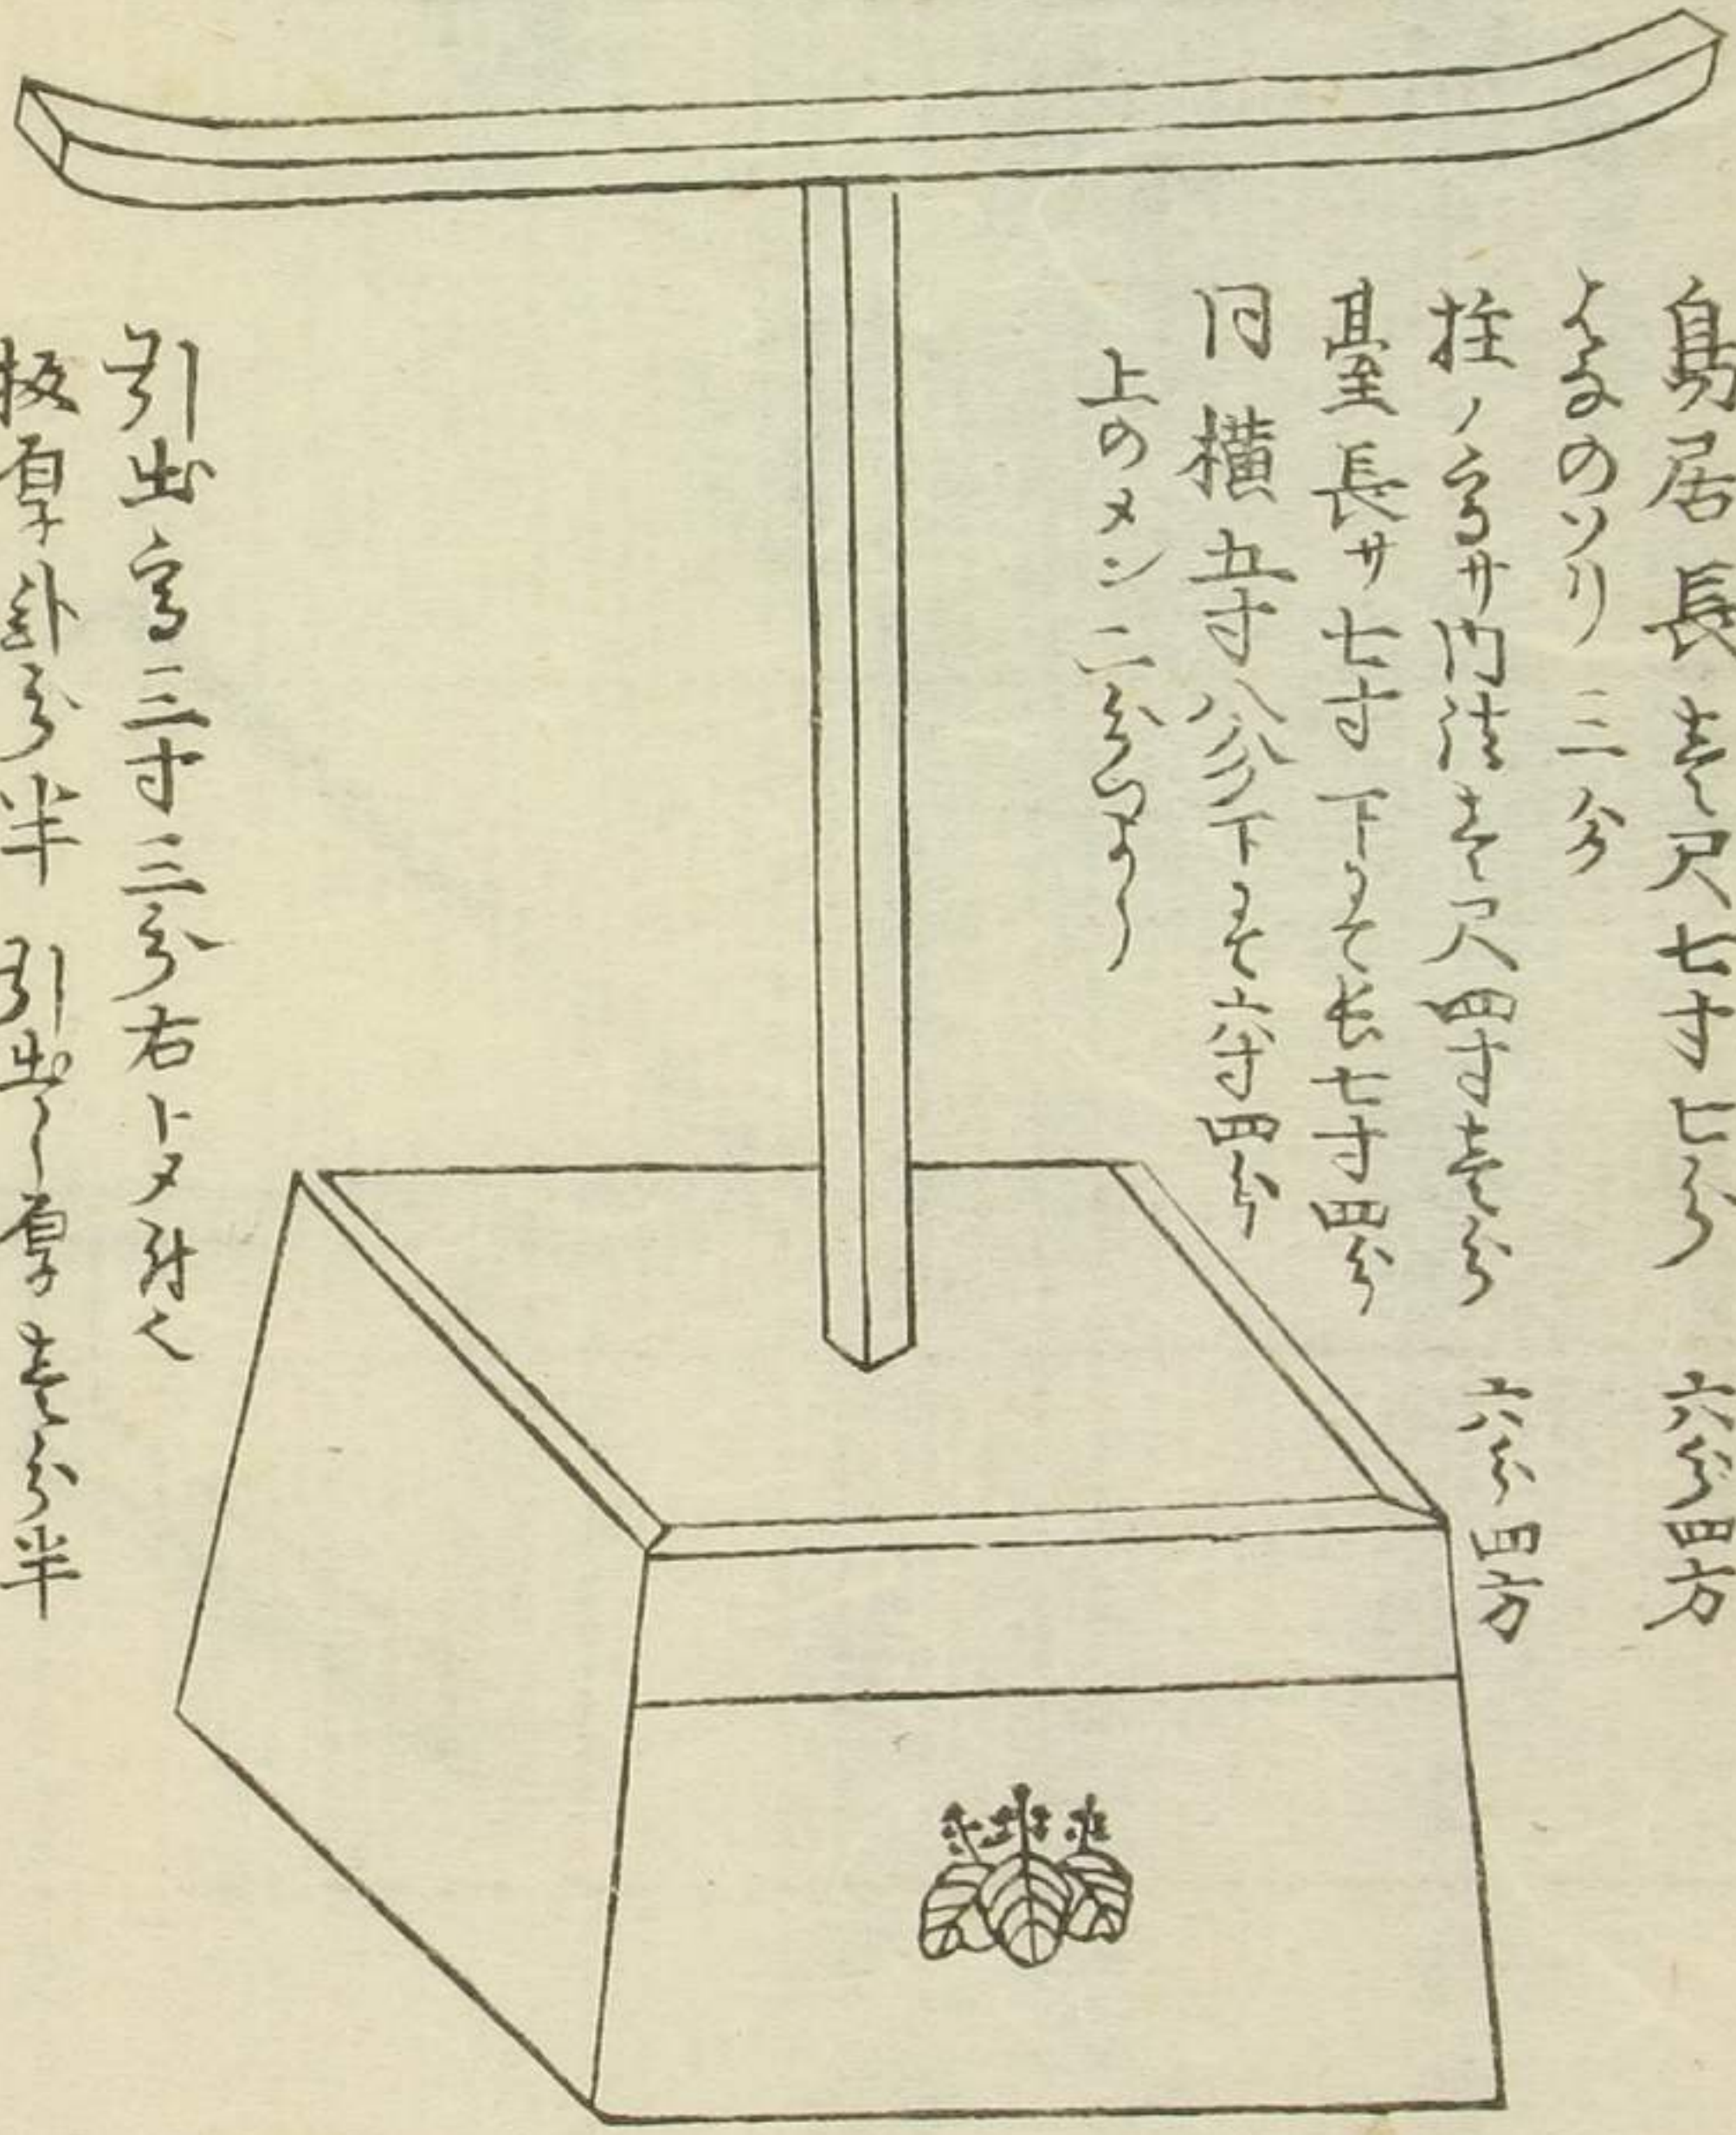 鳥居長壱尺七寸七分 六分四方
のソリ 三分
柱ノ高サ内法壱尺四寸壱分 六分四方
臺長サ七寸下にて長七寸四分
同横五寸八分下にて六寸四分
上のメン二分
引出高三寸三分右トメ
板厚弐分半 引出し厚壱分半